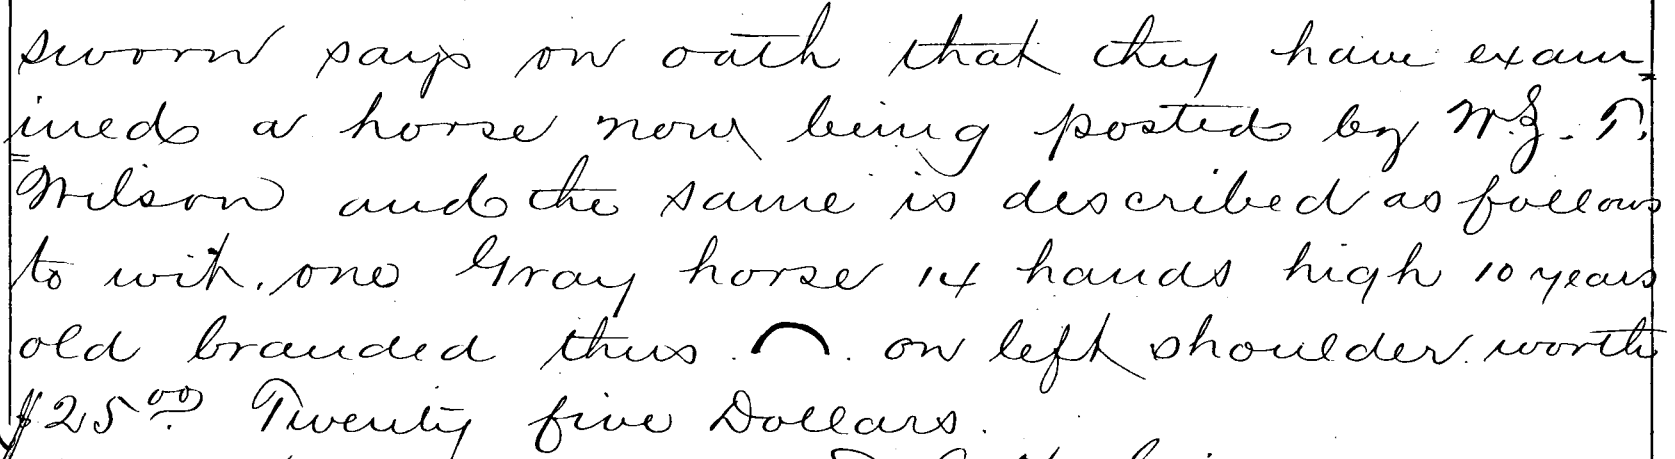 sworn says on oath that they have exam=
=ined a horse now being posted by W. G. T.
Wilson and the same is described as follows
to wit. one Gray horse 14 hands high 10 years
old branded thus . ⌒ . on left shoulder worth
$25.00 Twenty five Dollars.